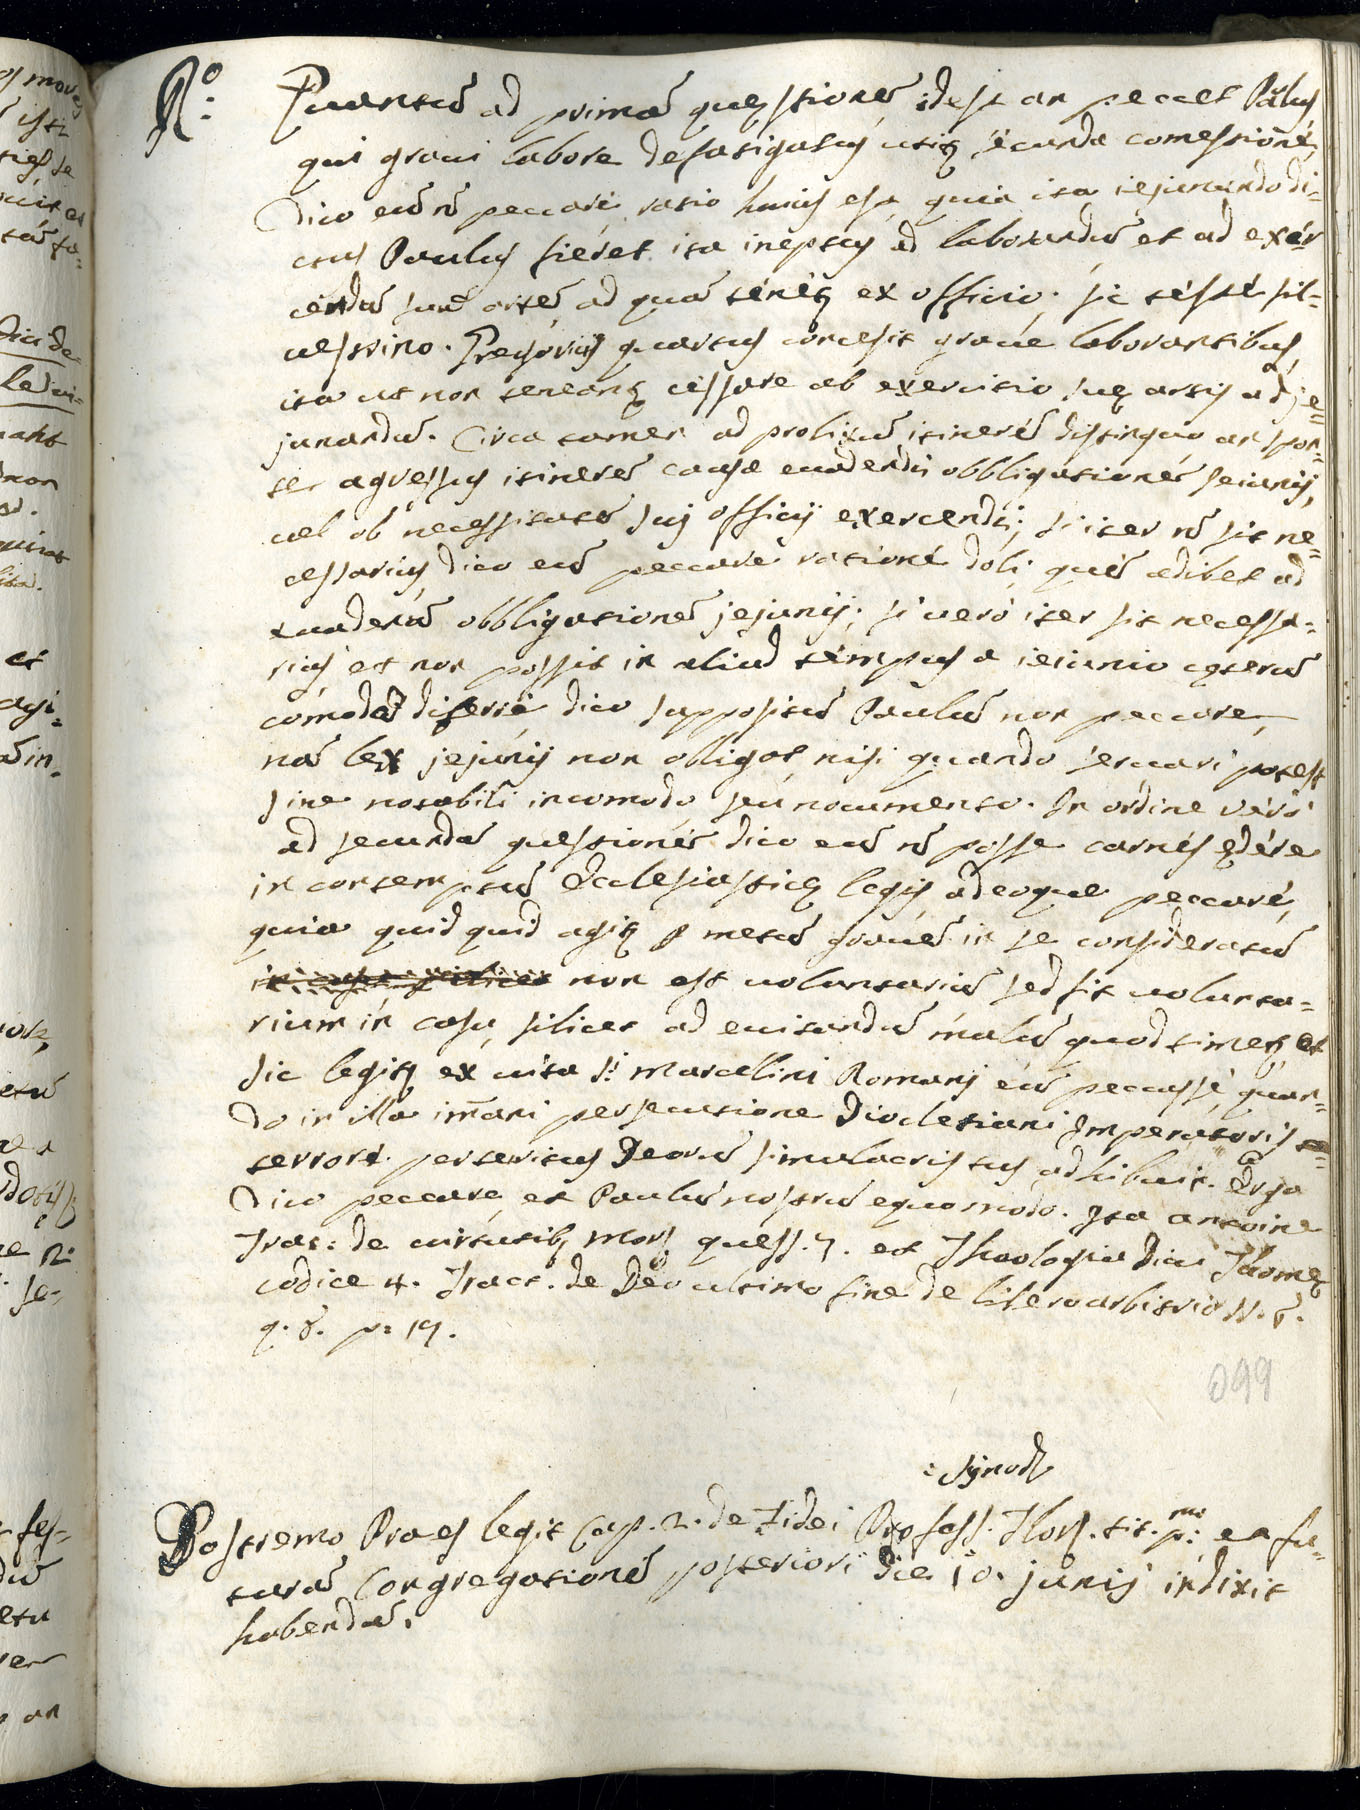 R.o Quantũ ad primã quęstionẽ, idest an peccet Pãlus
qui graui labore defatigatus utitz secunda comestionẽ,
Dico eũ nõ peccare, ratio huius est, quia ita iejunando di=
ctus Paulus fieret ita ineptus ad laborandũ et ad exer
cendã suã artẽ, ad quã tenetz ex officio; sic teste sil=
uestrino. Gregorius quartus concesit graue laborantibus,
ita ut non teneantz cessare ab exercitio suę artis ad je=
junandũ. Circa tamen ad prolixũ itinerẽ distinguo, an spon=
te agressus itinerẽ causa euadendi obbligationẽ Jeiunij,
uel ob necessitatẽ sui officij exercendi; si iter nõ sit ne=
cessarius dico eũ peccare ratione doli quẽ adibet ad
euadendã obbligationẽ jejunij; si uero iter sit necessa=
rius et non possit in aliud tempus a ieiunio
comodẽ diferri dico suppositũ Paulũ non peccare,
nã lex jejunij non obligat, nisi quando seruari potest
sine notabili incomodo, seu nocumento. In ordine vero
ad secundã quęstionẽ dico eũ nõ posse carnes edere
in contemptũ Ecclesiasticę legis, adeoque peccare,
quia quid quid agitz p metũ grauẽ in se consideratũ
non est uoluntariũ sed fit uolunta=
rium in casu, silicet ad euitandũ malũ quod timetz, et
sic legitz ex uita S: Marcellini Romani eũ peccasse, quan=
do in illa imãni persecutione Diocletiani Imperatoris
terrore perteritus Deorũ simulacris tus adhibuit. Ergo
Dico peccare, et Paulũ nostrũ equo modo. Ita Antoine
Trac: de uirtutib mor quęs. 7. et Theologia Diui Thomę
codice 4. Tract. de Deo ultimo fine de libero arbitrio N. 8.
q. 8. p: 19.
099
: Synod
Postremo Praes legit Cap. 2. de Fidei Profess. Flor. tit. p:mo et fu=
turã Congregationẽ posteriori die 10. junij indixit
habendã.